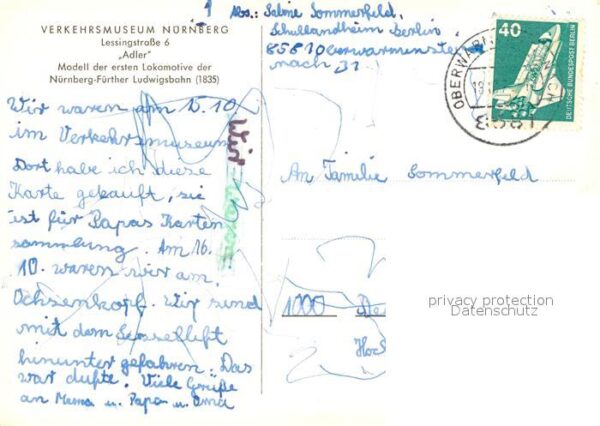 VERKEHRSMUSEUM NÜRNBERG
Lessingstraße 6
„Adler"
Modell der ersten Lokomotive der
Nürnberg-Fürther Ludwigsbahn (1835)
Wir waren am 15.10
im Verkehrsmuseum
Dort habe ich diese
Karte gekauft, sie
ist für Papas Karten
sammlung. Am 16.
10. waren wir am
Ochsenkopf. Wir sind
mit dem Sessellift
hinunter gefahren. Das
war dufte. Viele Grüße
an Mama u. Papa u. Oma
1 Abs.: Sabine Sommerfeld,
Schullandheim Berlin,
8581 Oberwarmenstei
nach 31
Wir
40
DEUTSCHE BUNDESPOST BERLIN
OBERWAR
8581
An Familie Sommerfeld
1000 Be
Hoc
privacy protection
Datenschutz